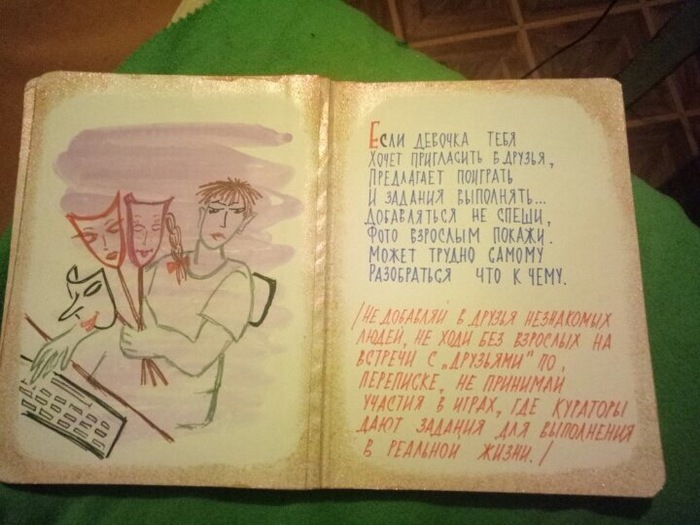 Если девочка тебя
хочет пригласить в друзья,
предлагает поиграть
и задания выполнять...
Добавляться не спеши,
фото взрослым покажи.
Может трудно самому
разобраться что к чему.
/Не добавляй в друзья незнакомых
людей, не ходи без взрослых на
встречи с „друзьями" по
переписке, не принимай
участия в играх, где кураторы
дают задания для выполнения
в реальной жизни./